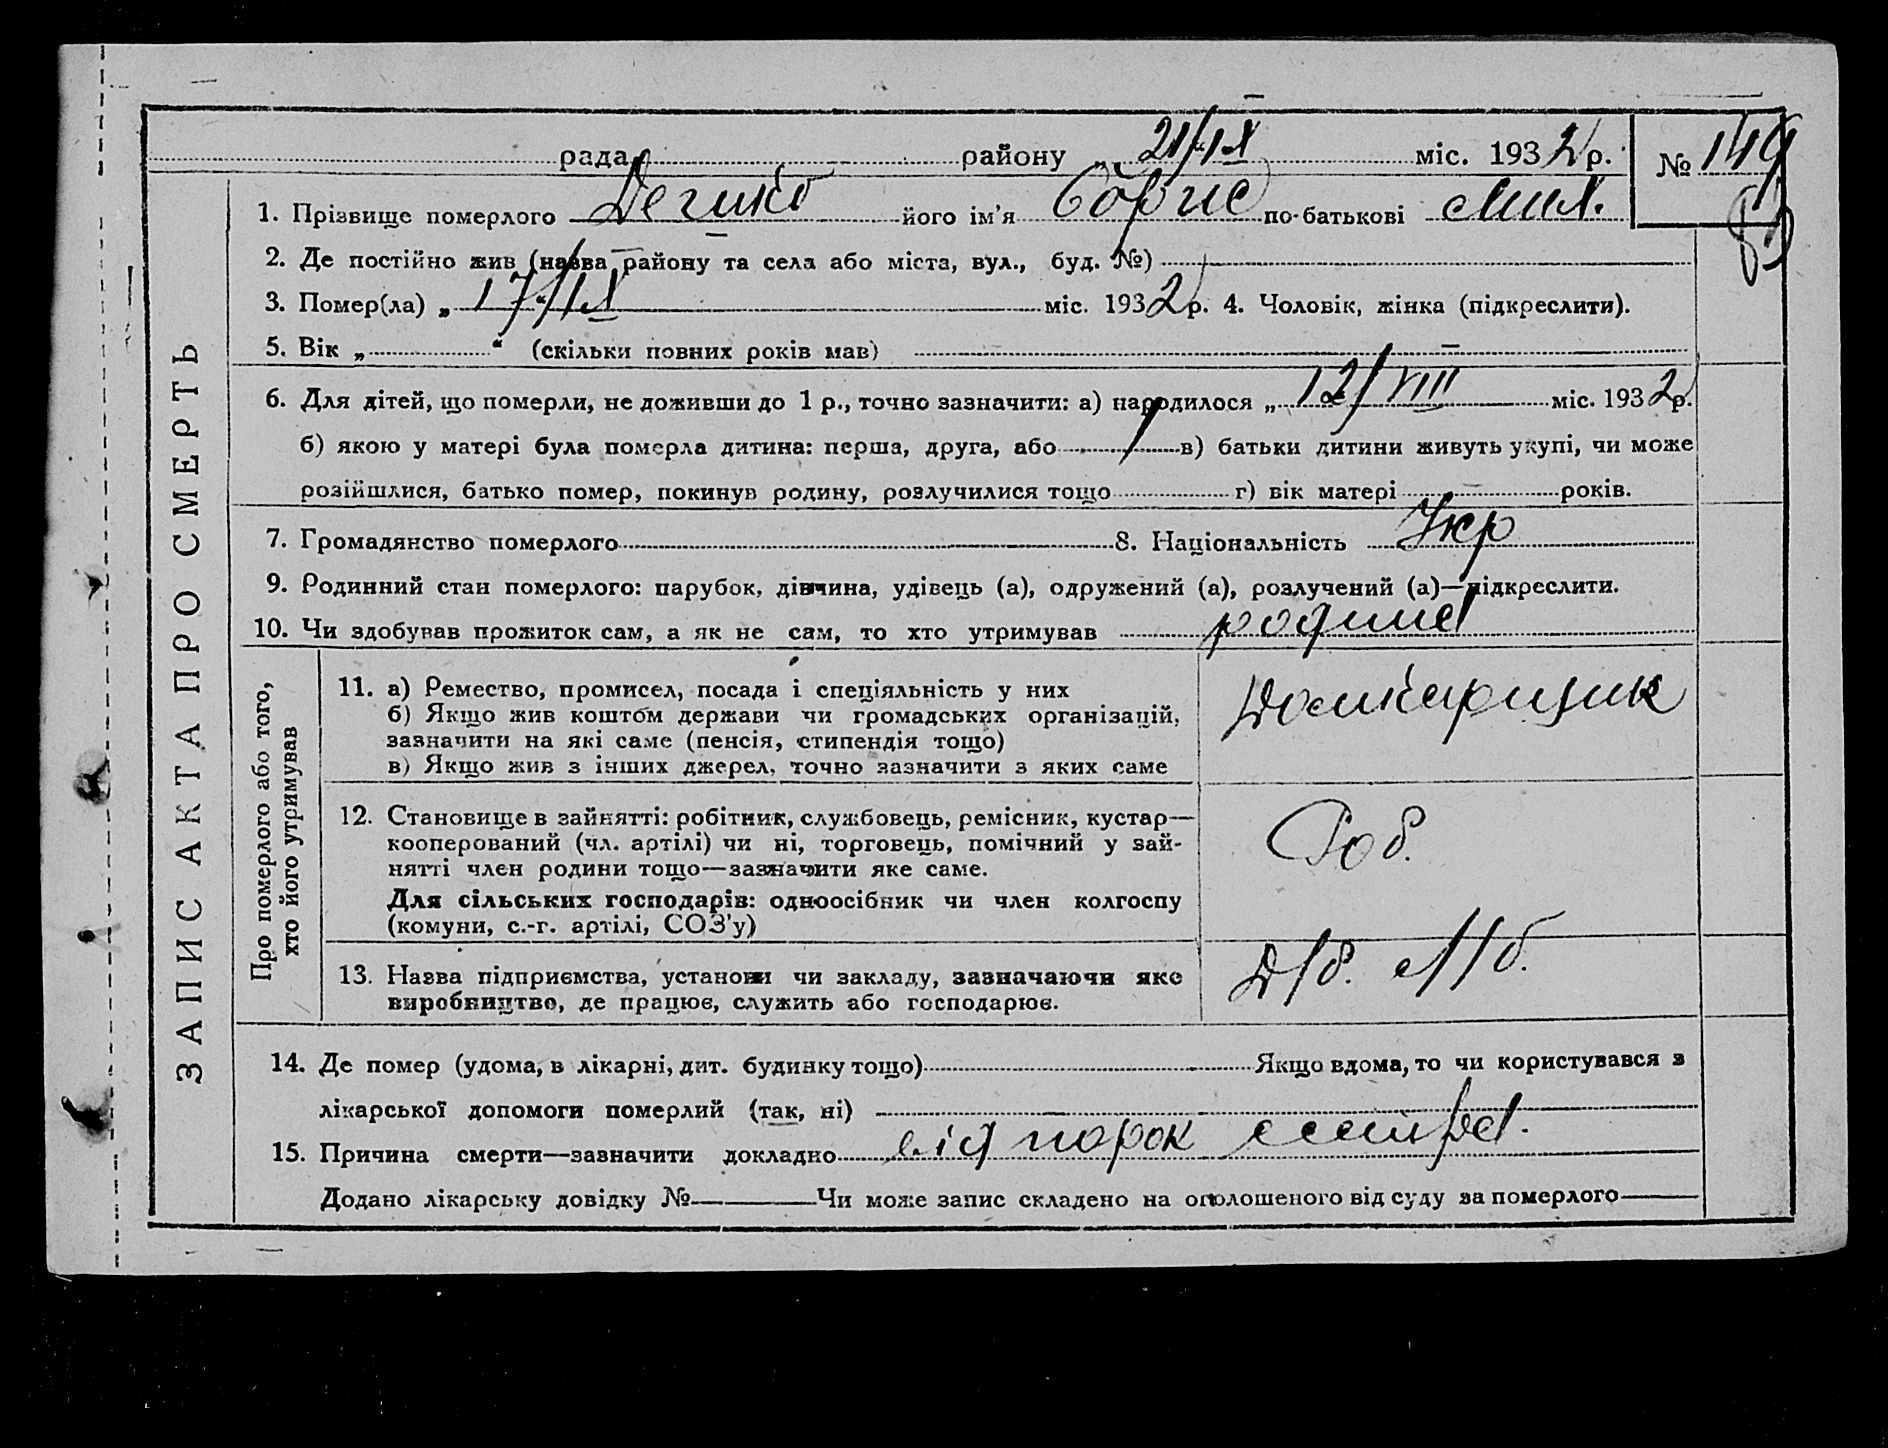 рада района району „ 21/IX міс. 1932 р. № 149
1. Прізвище померлого його ім'я Борис по-батькові Мих.
2. Де постійно жив (назва району та села або міста, вул., буд. №)
3. Помер(ла) „ 17/IX міс. 1932 р. 4. Чоловік, жінка (підкреслити).
5. Вік „ “ (скільки повних років мав) —
6. Для дітей, що померли, не доживши до 1 р., точно зазначити: а) народилося „ 12/VIII міс. 1932 р.
б) якою у матері була померла дитина: перша, друга, або 1 в) батьки дитини живуть укупі, чи може
розійшлися, батько помер, покинув родину, розлучилися тощо г) вік матері років.
7. Громадянство померлого 8. Національність Укр
9. Родинний стан померлого: парубок, дівчина, удівець (а), одружений (а), розлучений (а)—підкреслити.
10. Чи здобував прожиток сам, а як не сам, то хто утримував родина
ЗАПИС АКТА ПРО СМЕРТЬ
Про померлого або того, хто його утримував
11. а) Ремество, промисел, посада і спеціяльність у них
б) Якщо жив коштом держави чи громадських організацій,
зазначити на які саме (пенсія, стипендія тощо)
в) Якщо жив з інших джерел, точно зазначити з яких саме
12. Становище в зайнятті: робітник, службовець, ремісник, кустар—
кооперований (чл. артілі) чи ні, торговець, помічний у зай-
нятті член родини тощо—зазначити яке саме.
Роб.
Для сільських господарів: одноосібник чи член колгоспу
(комуни, с.-г. артілі, СОЗ'у)
13. Назва підприємства, установи чи закладу, зазначаючи яке
виробництво, де працює, служить або господарює.
14. Де помер (удома, в лікарні, дит. будинку тощо) Якщо вдома, то чи користувався з
лікарської допомоги померлий (так, ні)
15. Причина смерти—зазначити докладно від порок
Додано лікарську довідку № Чи може запис складено на оголошеного від суду за померлого